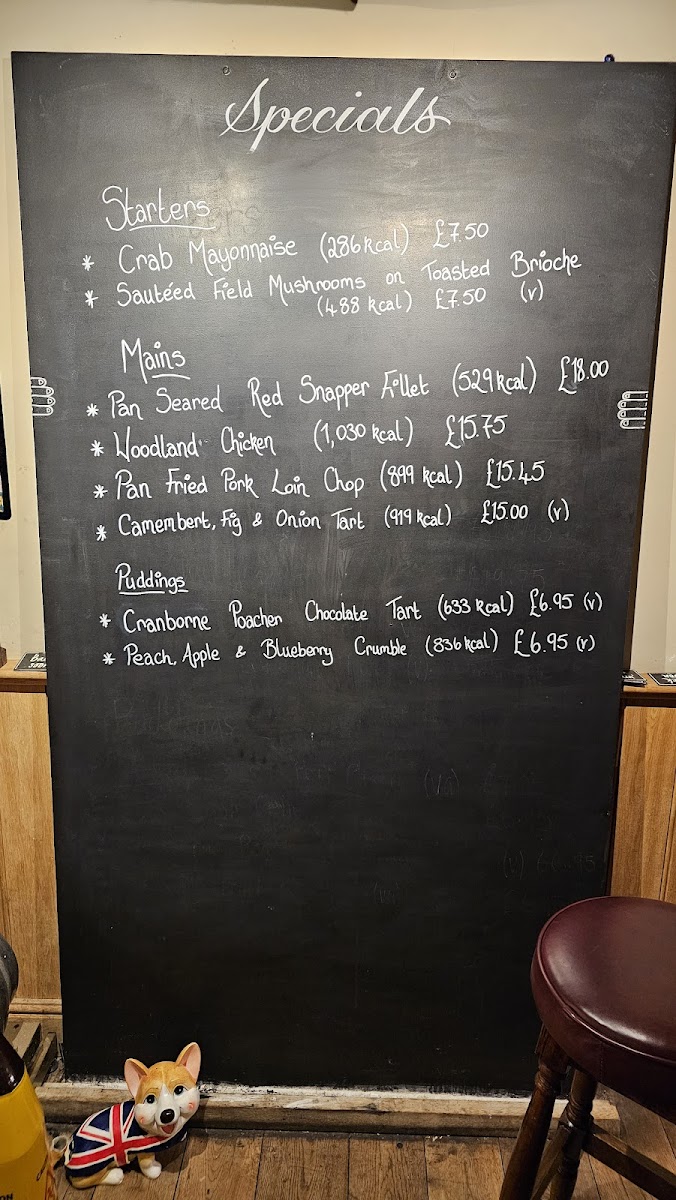 Specials
Starters
* Crab Mayonnaise (286 kcal) £7.50
* Sautéed Field Mushrooms on Toasted Brioche
(488 kcal) £7.50 (v)
Mains
* Pan Seared Red Snapper Fillet (529 kcal) £18.00
* Woodland Chicken (1,030 kcal) £15.75
* Pan Fried Pork Loin Chop (899 kcal) £15.45
* Camembert, Fig & Onion Tart (919 kcal) £15.00 (v)
Puddings
* Cranborne Poacher Chocolate Tart (633 kcal) £6.95 (v)
* Peach, Apple & Blueberry Crumble (836 kcal) £6.95 (v)